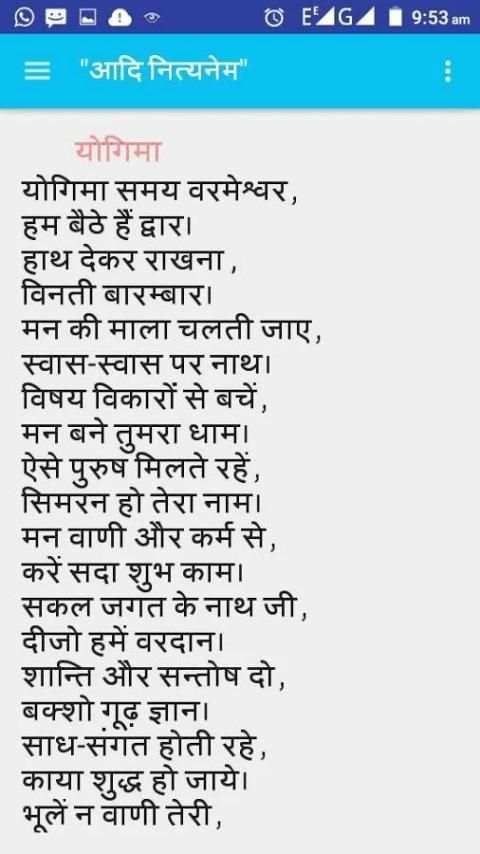 EE G 9:53 am
"आदि नित्यनेम"
योगिमा
योगिमा समय वरमेश्वर,
हम बैठे हैं द्वार।
हाथ देकर राखना,
विनती बारम्बार।
मन की माला चलती जाए,
स्वास-स्वास पर नाथ।
विषय विकारों से बचें,
मन बने तुमरा धाम।
ऐसे पुरुष मिलते रहें,
सिमरन हो तेरा नाम।
मन वाणी और कर्म से,
करें सदा शुभ काम।
सकल जगत के नाथ जी,
दीजो हमें वरदान।
शान्ति और सन्तोष दो,
बक्शो गूढ़ ज्ञान।
साध-संगत होती रहे,
काया शुद्ध हो जाये।
भूलें न वाणी तेरी,